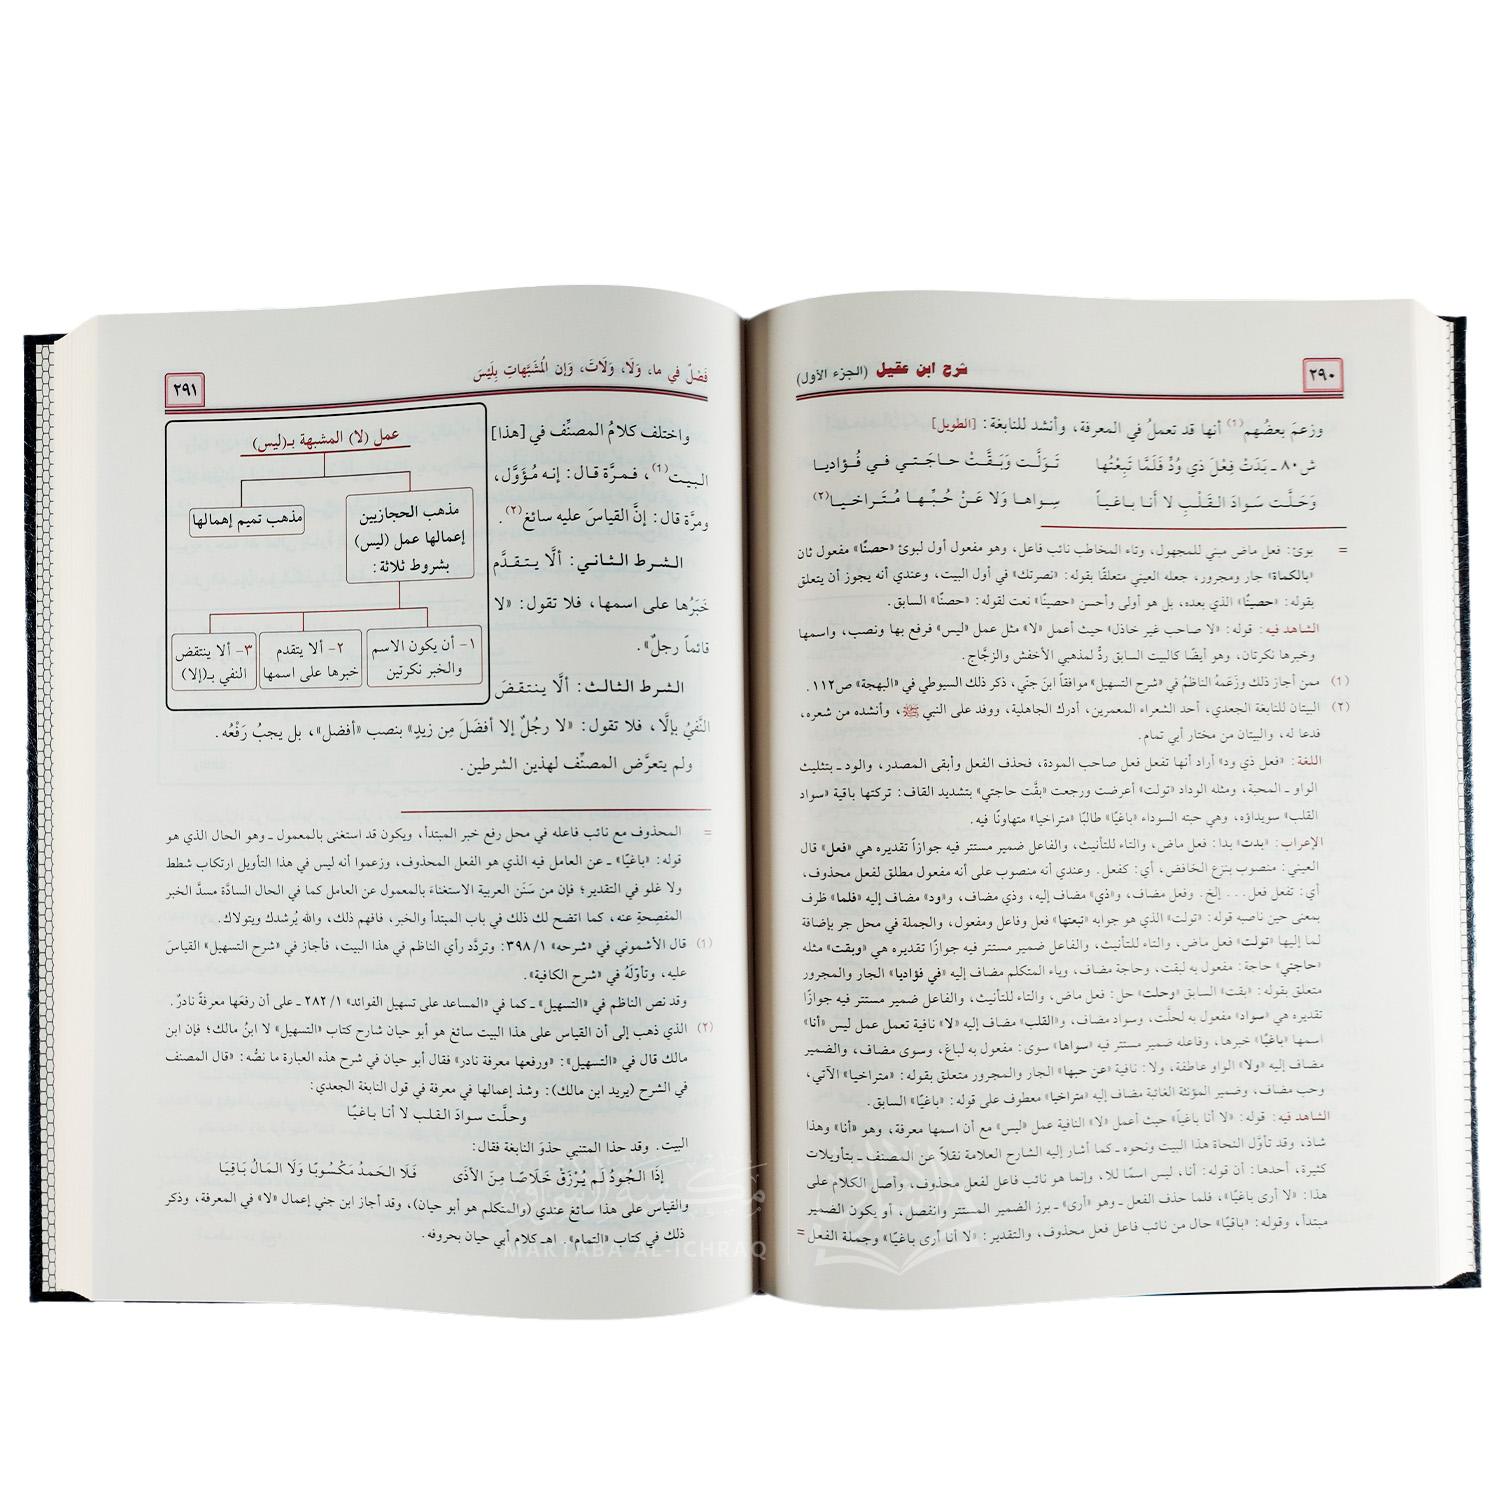 شرح ابن عقيل (الجزء الأول)
٢٩٠
وزعمَ بعضُهم(١) أنها قد تعملُ في المعرفة، وأنشد للنابغة: [الطويل]
ش ٨٠ ـ بَدَتْ فِعْلَ ذي وُدٍّ فَلَمَّا تَبِعْتُها تَوَلَّت وَبَقَّتْ حاجَتي في فُؤاديا
وَحَلَّت سَوادَ القَلْبِ لا أنا باغياً سِواها وَلا عَنْ حُبِّها مُتَراخيا(٢)
= بوئ: فعل ماض مبني للمجهول، وتاء المخاطب نائب فاعل، وهو مفعول أول لبوئ «حصنًا» مفعول ثان
«بالكماة» جار ومجرور، جعله العيني متعلقًا بقوله: «نصرتك» في أول البيت، وعندي أنه يجوز أن يتعلق
بقوله: «حصينًا» الذي بعده، بل هو أولى وأحسن «حصينًا» نعت لقوله: «حصنًا» السابق.
الشاهد فيه: قوله: «لا صاحب غير خاذل» حيث أعمل «لا» مثل عمل «ليس» فرفع بها ونصب، واسمها
وخبرها نكرتان، وهو أيضًا كالبيت السابق ردٌّ لمذهبي الأخفش والزجَّاج.
(١) ممن أجاز ذلك وزَعَمهُ الناظمُ في «شرح التسهيل» موافقاً ابنَ جنّي، ذكر ذلك السيوطي في «البهجة» ص١١٢.
(٢) البيتان للنابغة الجعدي، أحد الشعراء المعمرين، أدرك الجاهلية، ووفد على النبي ﷺ، وأنشده من شعره،
فدعا له، والبيتان من مختار أبي تمام.
اللغة: «فعل ذي ود» أراد أنها تفعل فعل صاحب المودة، فحذف الفعل وأبقى المصدر، والود ـ بتثليث
الواو ـ المحبة، ومثله الوداد «تولت» أعرضت ورجعت «بقَّت حاجتي» بتشديد القاف: تركتها باقية «سواد
القلب» سويداؤه، وهي حبته السوداء «باغيًا» طالبًا «متراخيا» متهاونًا فيه.
الإعراب: «بدت» بدا: فعل ماض، والتاء للتأنيث، والفاعل ضمير مستتر فيه جوازاً تقديره هي «فعل» قال
العيني: منصوب بنزع الخافض، أي: كفعل. وعندي أنه منصوب على أنه مفعول مطلق لفعل محذوف،
أي: تفعل فعل... إلخ. وفعل مضاف، و«ذي» مضاف إليه، وذي مضاف، و«ود» مضاف إليه «فلما» ظرف
بمعنى حين ناصبه قوله: «تولت» الذي هو جوابه «تبعتها» فعل وفاعل ومفعول، والجملة في محل جر بإضافة
لما إليها «تولت» فعل ماض، والتاء للتأنيث، والفاعل ضمير مستتر فيه جوازًا تقديره هي «وبقت» مثله
«حاجتي» حاجة: مفعول به لبقت، وحاجة مضاف، وياء المتكلم مضاف إليه «في فؤاديا» الجار والمجرور
متعلق بقوله: «بقت» السابق «وحلت» حل: فعل ماض، والتاء للتأنيث، والفاعل ضمير مستتر فيه جوازًا
تقديره هي «سواد» مفعول به لحلَّت، وسواد مضاف، و«القلب» مضاف إليه «لا» نافية تعمل عمل ليس «أنا»
اسمها «باغيًا» خبرها، وفاعله ضمير مستتر فيه «سواها» سوى: مفعول به لباغ، وسوى مضاف، والضمير
مضاف إليه «ولا» الواو عاطفة، ولا: نافية «عن حبها» الجار والمجرور متعلق بقوله: «متراخيا» الآتي،
وحب مضاف، وضمير المؤنثة الغائبة مضاف إليه «متراخيا» معطوف على قوله: «باغيًا» السابق.
الشاهد فيه: قوله: «لا أنا باغياً» حيث أعمل «لا» النافية عمل «ليس» مع أن اسمها معرفة، وهو «أنا» وهذا
شاذ، وقد تأوَّل النحاة هذا البيت ونحوه ـ كما أشار إليه الشارح العلامة نقلاً عن المصنف ـ بتأويلات
كثيرة، أحدها: أن قوله: أنا، ليس اسمًا للا، وإنما هو نائب فاعل لفعل محذوف، وأصل الكلام على
هذا: «لا أرى باغيًا»، فلما حذف الفعل ـ وهو «أرى» ـ برز الضمير المستتر وانفصل، أو يكون الضمير
مبتدأ، وقوله: «باقيًا» حال من نائب فاعل فعل محذوف، والتقدير: «لا أنا أرى باغيًا» وجملة الفعل =
فَصْلٌ في ما، وَلَا، وَلَاتَ، وَإن المُشَبَّهاتِ بِلَيْسَ
٢٩١
واختلف كلامُ المصنِّف في [هذا]
البيت(١)، فمرَّة قال: إنه مُؤَوَّل،
ومرَّة قال: إنَّ القياسَ عليه سائغ(٢).
الشرط الثاني: ألَّا يتقدَّم
خَبَرُها على اسمها، فلا تقول: «لا
قائماً رجلٌ».
الشرط الثالث: ألَّا ينتقضَ
النَّفيُ بإلَّا، فلا تقول: «لا رجُلٌ إلا أفضلَ مِن زيدٍ» بنصب «أفضل»، بل يجبُ رَفْعُه.
ولم يتعرَّض المصنِّف لهذين الشرطين.
عمل (لا) المشبهة بـ(ليس)
مذهب الحجازيين
إعمالها عمل (ليس)
بشروط ثلاثة:
مذهب تميم إهمالها
١- أن يكون الاسم
والخبر نكرتين
٢- ألا يتقدم
خبرها على اسمها
٣- ألا ينتقض
النفي بـ(إلا)
= المحذوف مع نائب فاعله في محل رفع خبر المبتدأ، ويكون قد استغنى بالمعمول ـ وهو الحال الذي هو
قوله: «باغيًا» ـ عن العامل فيه الذي هو الفعل المحذوف، وزعموا أنه ليس في هذا التأويل ارتكاب شطط
ولا غلو في التقدير؛ فإن من سَنَن العربية الاستغناءَ بالمعمول عن العامل كما في الحال السادَّة مسدَّ الخبر
المفصحةِ عنه، كما اتضح لك ذلك في باب المبتدأ والخبر، فافهم ذلك، والله يُرشدك ويتولاك.
(١) قال الأشموني في «شرحه» ٣٩٨/١: وتردَّد رأي الناظم في هذا البيت، فأجاز في «شرح التسهيل» القياسَ
عليه، وتأوّلَهُ في «شرح الكافية».
وقد نص الناظم في «التسهيل» ـ كما في «المساعد على تسهيل الفوائد» ٢٨٢/١ ـ على أن رفعَها معرفةً نادرٌ.
(٢) الذي ذهب إلى أن القياس على هذا البيت سائغ هو أبو حيان شارح كتاب «التسهيل» لا ابنُ مالك؛ فإن ابن
مالك قال في «التسهيل»: «ورفعها معرفة نادر» فقال أبو حيان في شرح هذه العبارة ما نصُّه: «قال المصنف
في الشرح (يريد ابن مالك): وشذ إعمالها في معرفة في قول النابغة الجعدي:
وحلَّت سوادَ القلب لا أنا باغيًا
البيت. وقد حذا المتنبي حذوَ النابغة فقال:
إِذَا الجُودُ لَم يُرْزَقْ خَلَاصًا مِنَ الأَذَى فَلَا الحَمدُ مَكْسُوبًا وَلَا المَالُ بَاقِيَا
والقياس على هذا سائغ عندي (والمتكلم هو أبو حيان)، وقد أجاز ابن جني إعمال «لا» في المعرفة، وذكر
ذلك في كتاب «التمام». اهـ كلام أبي حيان بحروفه.
مكتبة الإشراق
MAKTABA AL-ICHRAQ